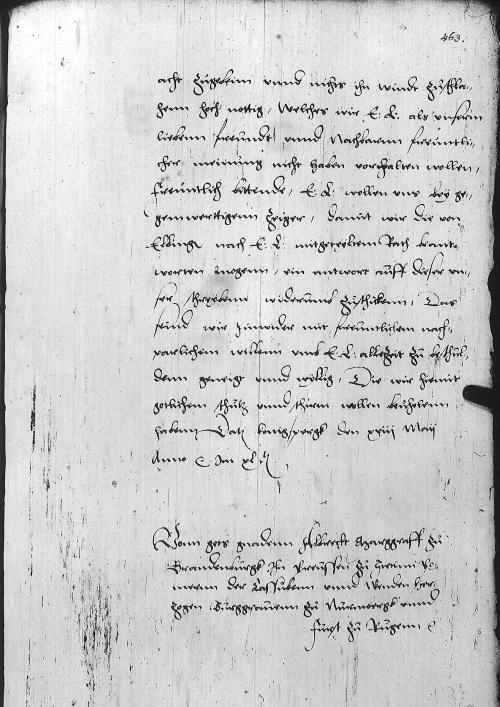 463.
acht zugebenn unnd nichts ihn windt zuschla-
henn hoch nottig, Welches wir E. L. als unserm
liebenn freundt unnd Nachbarnn freuntli-
cher meinung nicht haben vorhalten wollen,
freuntlich bittende, E. L. wollen uns bey ge-
genwertigem Zeiger, damit wir die von
Elbing nach E. L. mitgeteyltem Rath beant-
worten mogenn, ein antwort auff dieser un-
ser schreybenn widerumb zuschickenn, Das
seind wir Inwider mit freuntlichem nach-
parlichem willenn umb E. L. alletzeit zu beschul-
denn geneigt unnd wyllig, Die wir hiemit
gotlichem schutz unnd schirm wollen bevholenn
habenn Dat Konigspergk den xxiii Maii
Anno &c Im xl
Vonn gots gnadenn Albrecht Marggraff zu
Brandenburgk In Preussen zu Stettin Po-
mernn der Cassubenn unnd Wenden Her-
zogen Burggravenn zu Nurmbergk unnd
Furst zu Rugenn &c